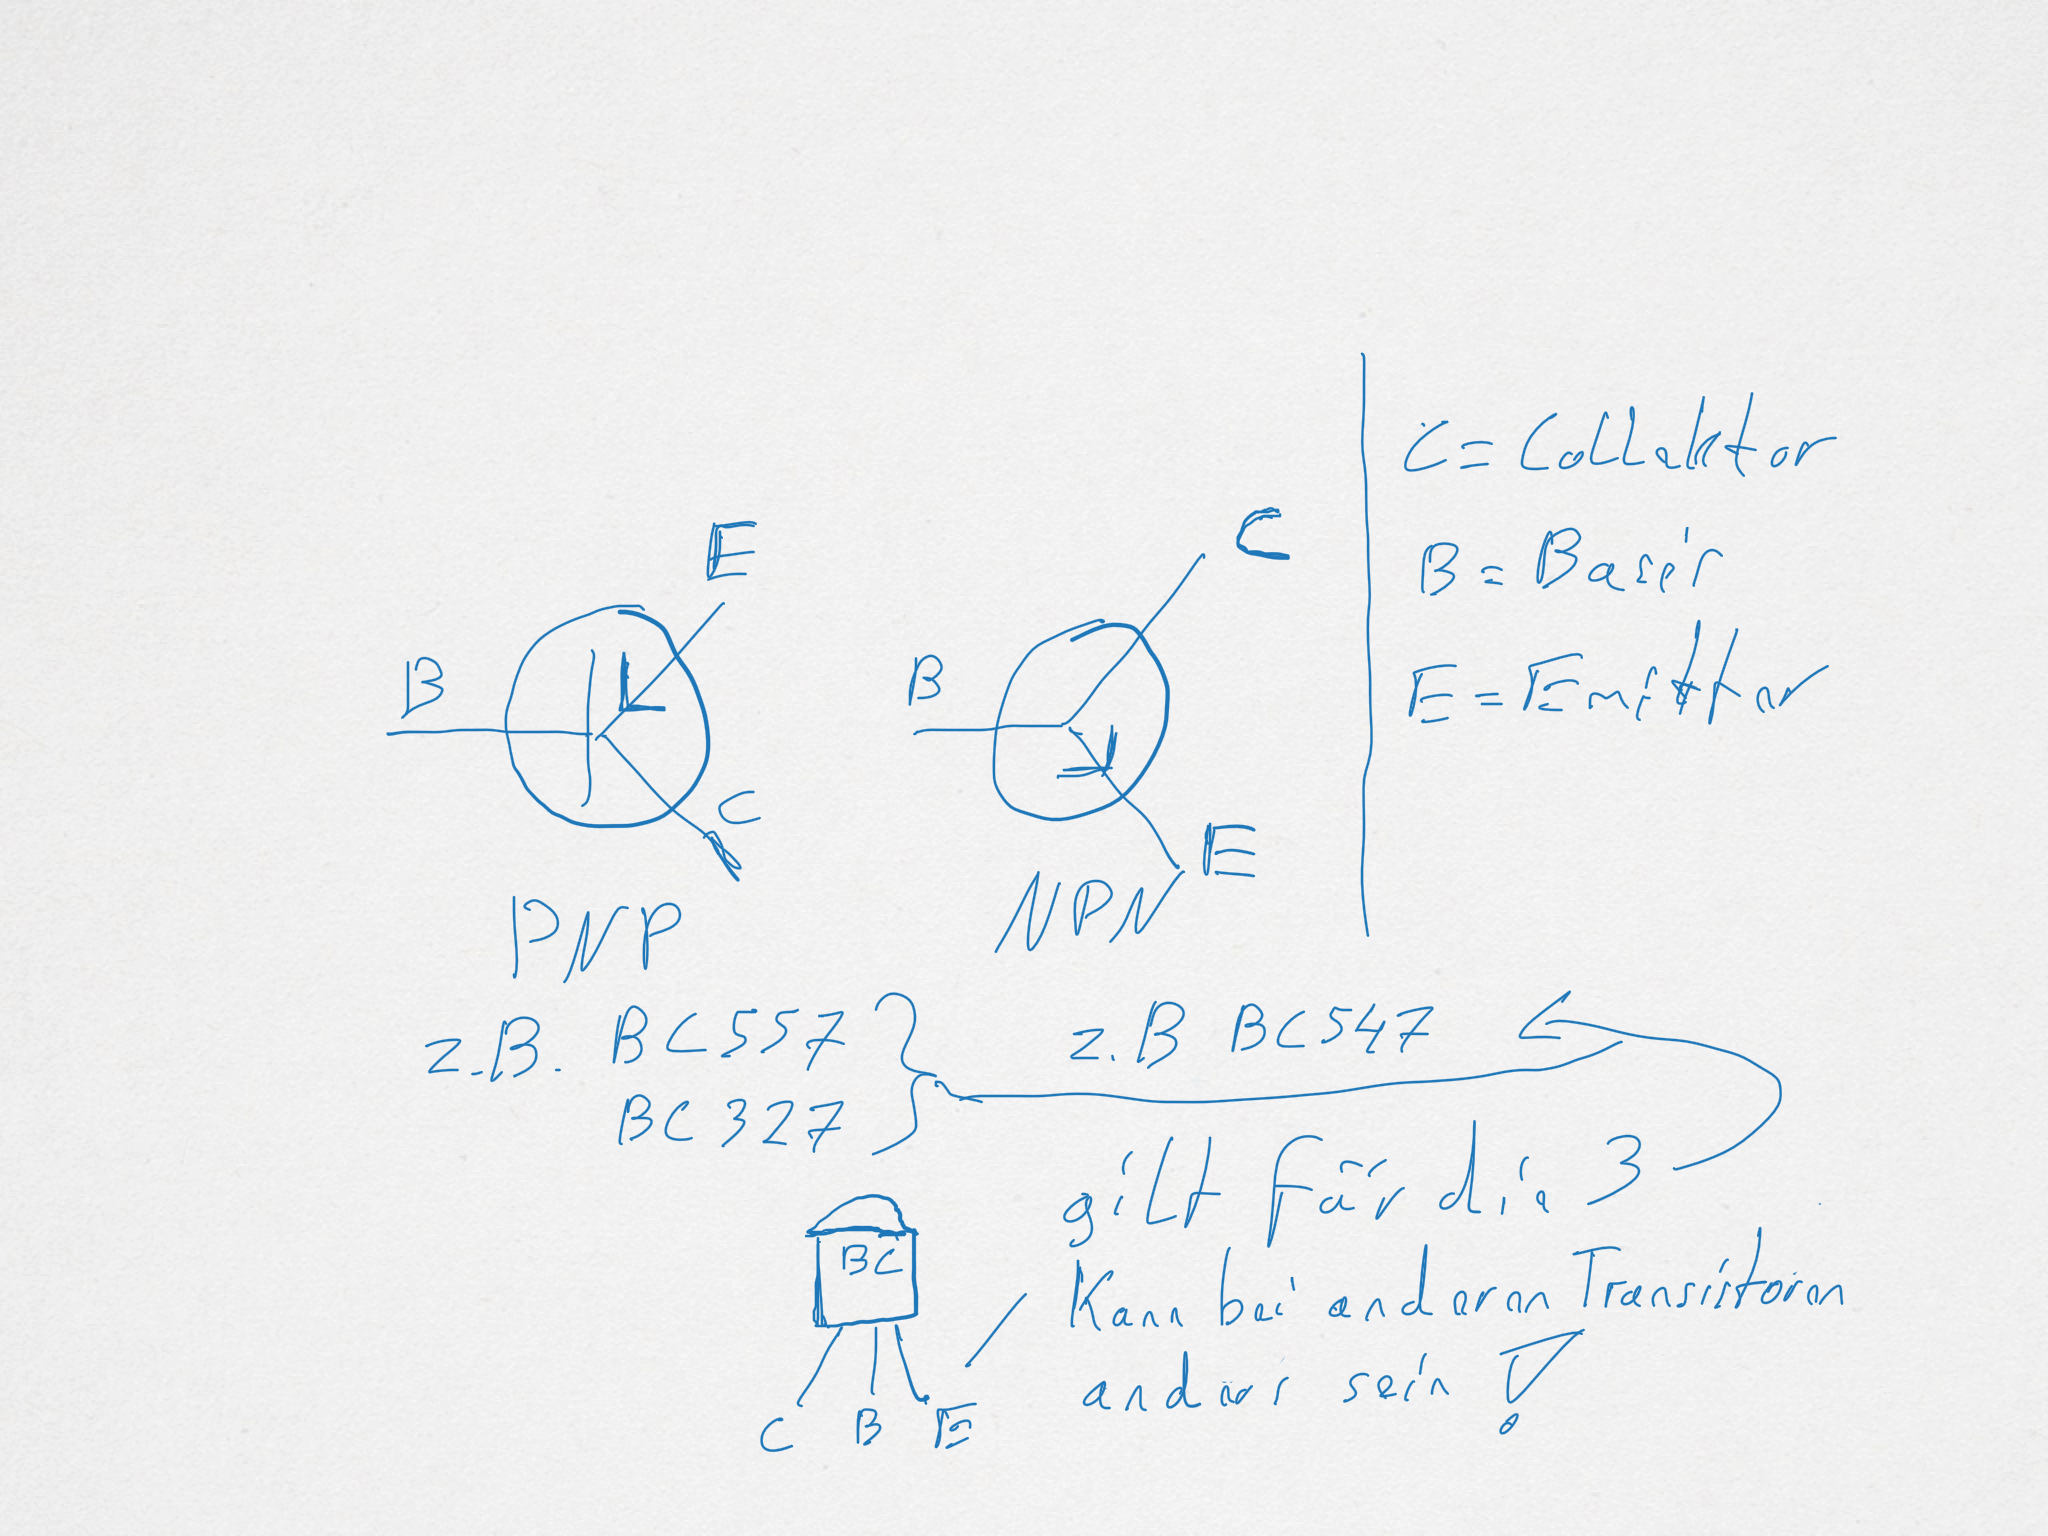 C = Collektor
B = Basis
E = Emitter
E
C
B
B
C
E
PNP
NPN
z.B. BC557
BC327
z.B BC547
gilt für die 3
Kann bei anderen Transistoren
anders sein !
BC
C B E